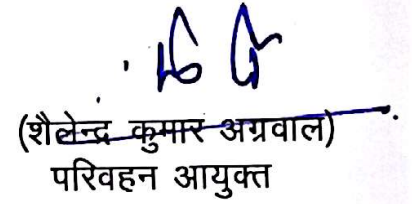 (शैलेन्द्र कुमार अग्रवाल)
परिवहन आयुक्त